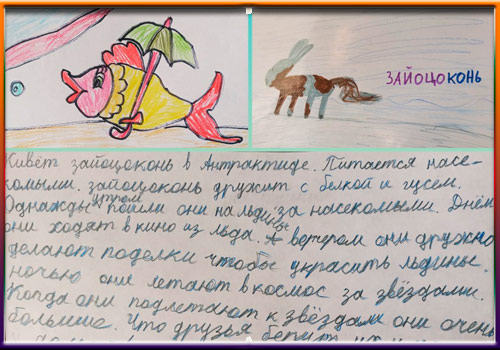 ЗАЙОЦОКОНЬ
Живёт зайоцоконь в Антрактиде. Питается насе-
комыми. зайоцоконь дружит с белкой и гусем.
Однажды утром пошли они на льдины за насекомыми. Днём
они ходят в кино из льда. А вечером они дружно
делают поделки чтобы украсить льдины.
ночью они летают в космос за звёздами.
Когда они подлетают к звёздам они очень
больше. Что друзья берут